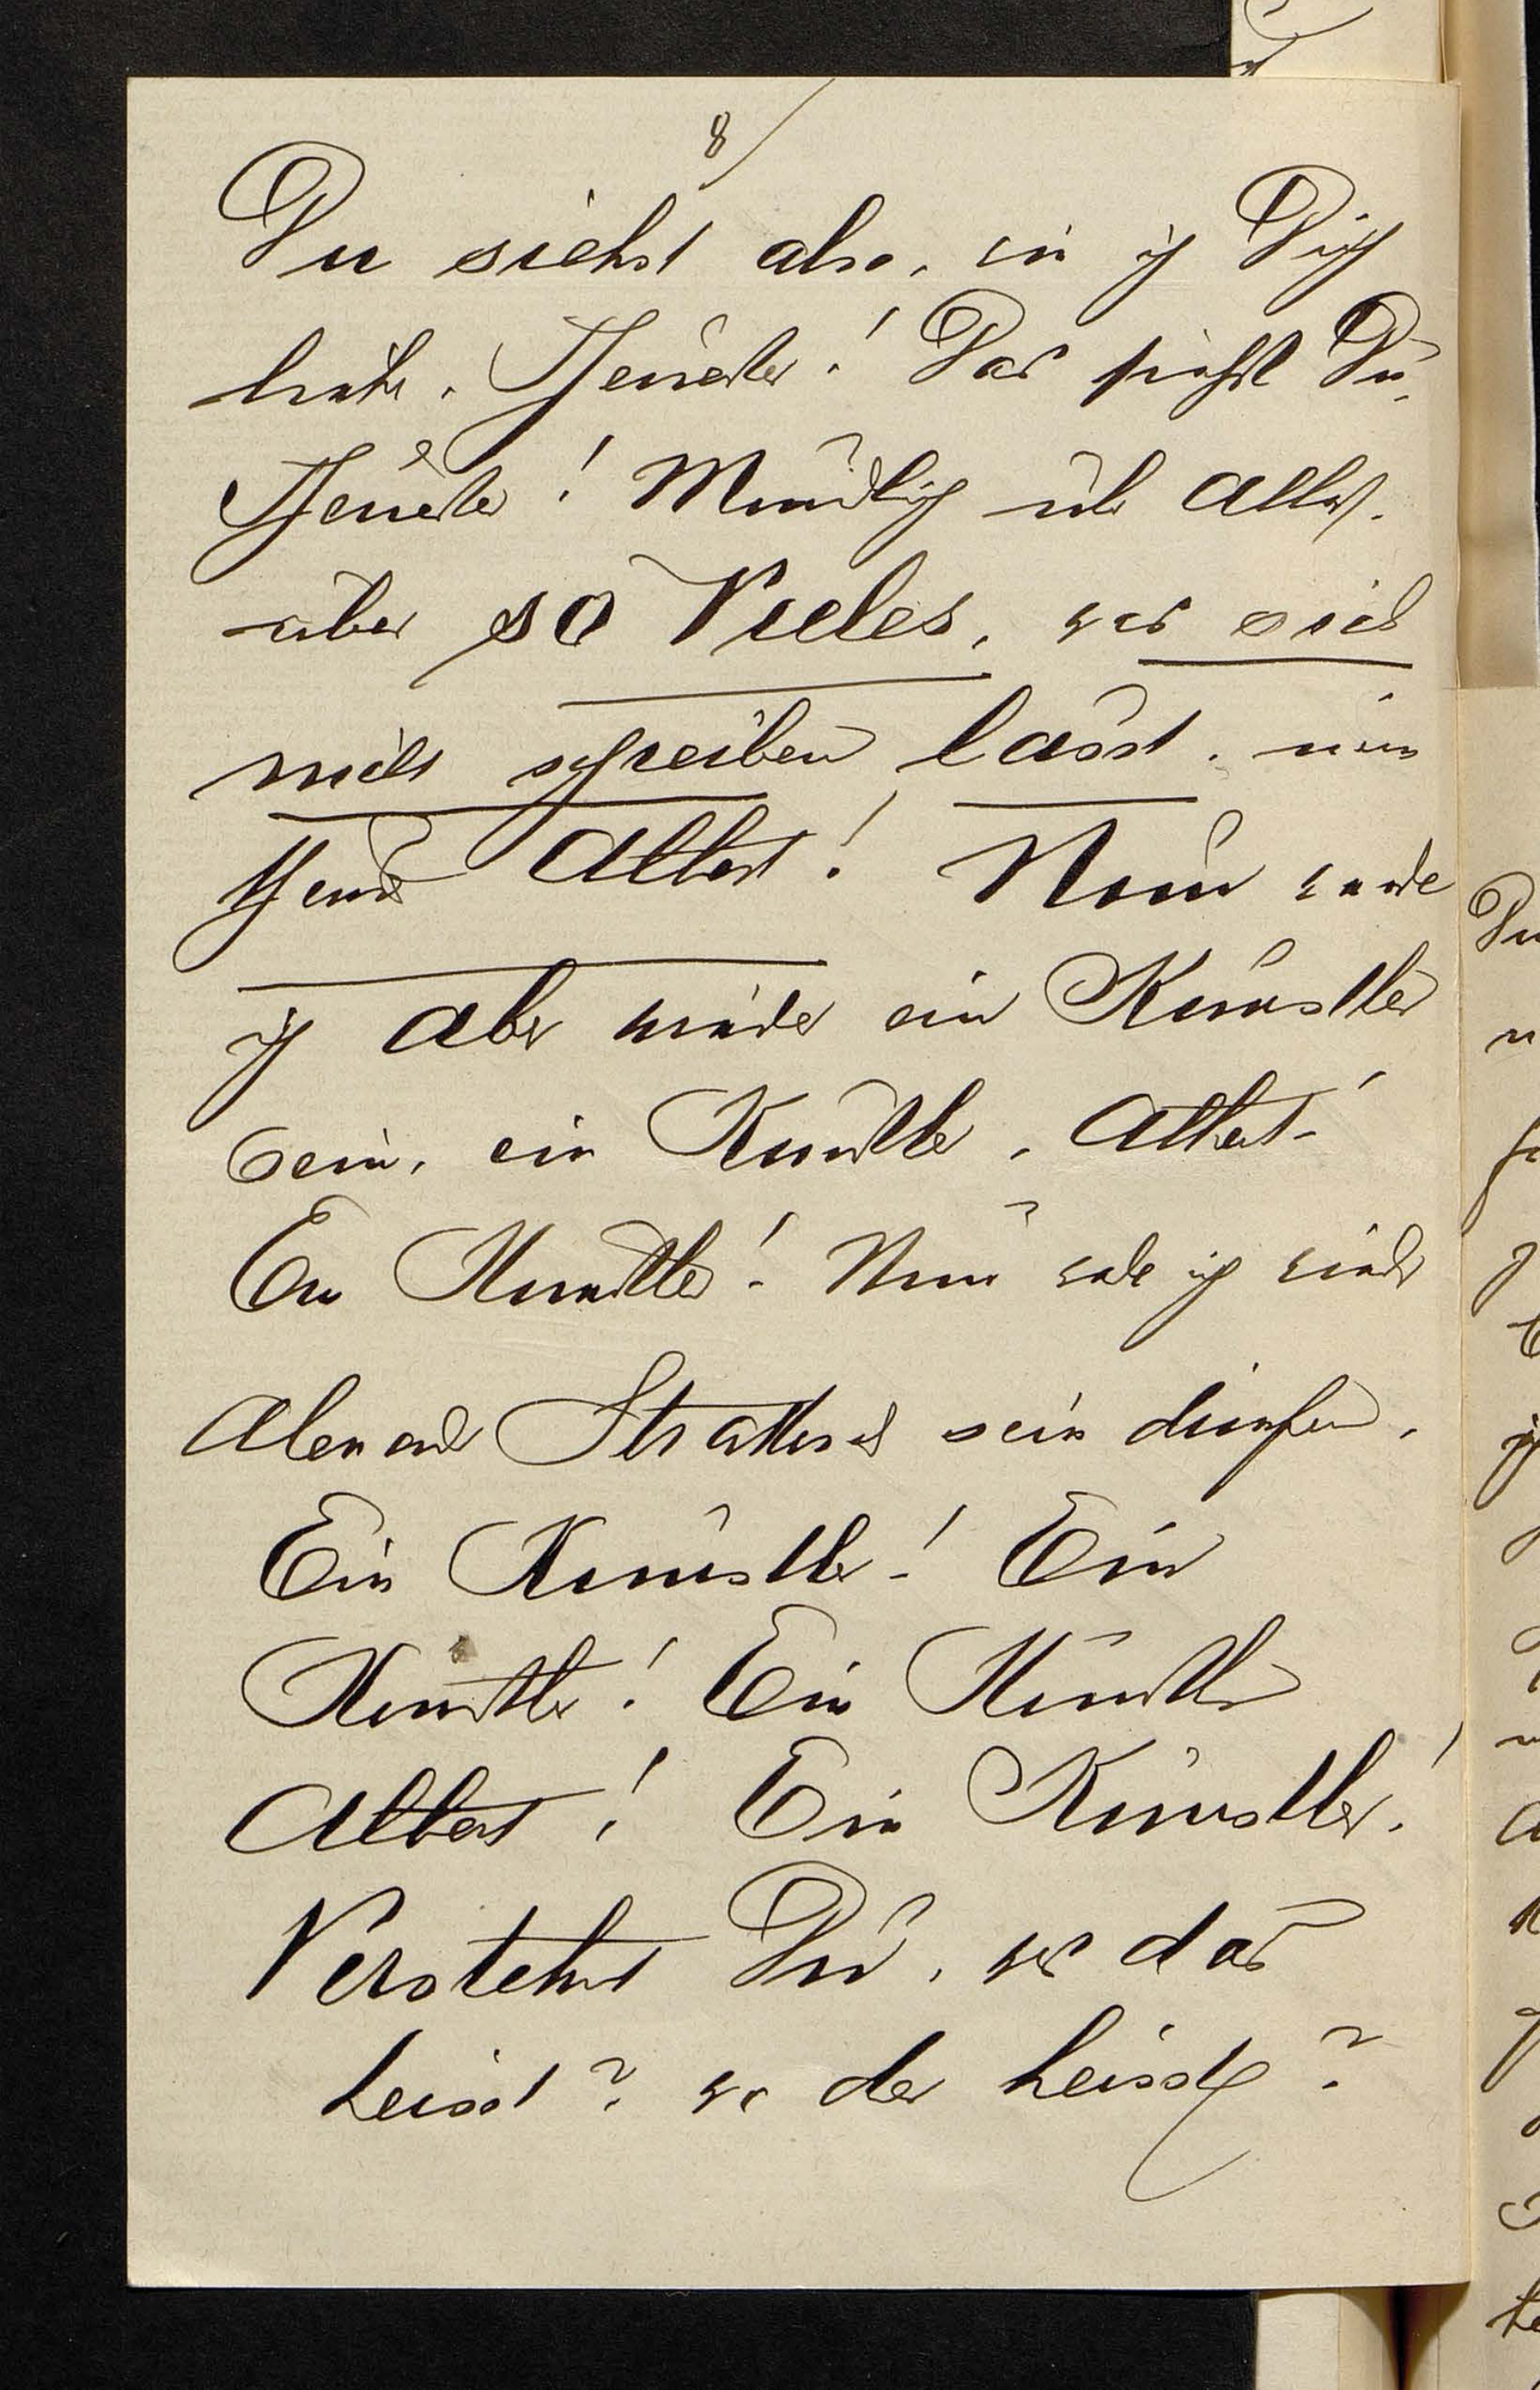 8/
Du siehst also, wie ich Dich
liebe, Theuerster! Das siehst Du,
Theuerster! Mündlich über Alles,
über so Vieles, was sich
nicht schreiben lässt, mein
Albert! Nun werde
ich aber wieder ein Künstler
sein, ein Künstler, Albert!
Ein Künstler! Nun werde ich wieder
Alexander Strakosch sein dürfen,
Ein Künstler! Ein
Künstler! Ein Künstler
Albert! Ein Künstler!
Verstehst Du, was das
heisst? was das heisst?